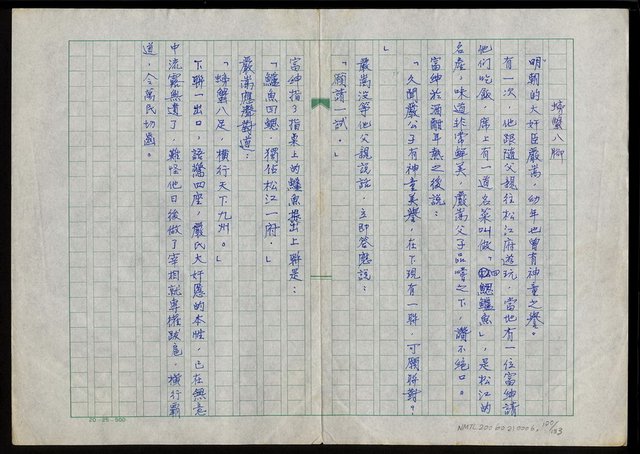 螃蟹八腳
明朝的大奸臣嚴嵩，幼年也曾有神童之譽。
有一次，他跟隨父親往松江府遊玩，當地有一位富紳請
他們吃飯，席上有一道名菜叫做「四鰓鱸魚」，是松江的
名產，味道非常鮮美，嚴嵩父子品嚐之下，讚不絕口。
富紳於酒酣耳熱之後說：
「久聞嚴公子有神童美譽，在下現有一聯，可願聯對？
」
嚴嵩沒等他父親說話，立即答應說：
「願請一試。」
富紳指了指桌上的鱸魚出上聯是：
「鱸魚四鰓，獨佔松江一府。」
嚴嵩應聲對道：
「螃蟹八足，橫行天下九州。」
下聯一出口，語驚四座，嚴氏大奸惡的本性，已在無意
中流露無遺了，難怪他日後做了宰相就專權跋扈，橫行霸
道，令萬民切齒。
20×25=500
NMTL20060210006, 100/183